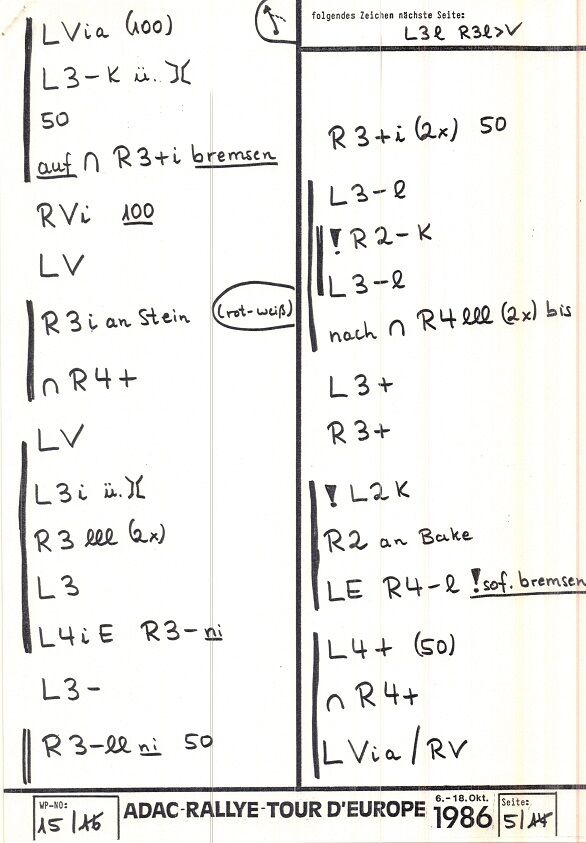 L Via (100)
L3-K ü. )(
50
auf ∩ R3+i bremsen
RVi 100
LV
R3i an Stein (rot-weiß)
∩ R4+
LV
L3i ü. )(
R3 lll (2x)
L3
L4iE R3-ni
L3-
R3-ll ni 50
folgendes Zeichen nächste Seite:
L3l R3l>V
R3+i (2x) 50
L3-l
! R2-K
L3-l
nach ∩ R4lll (2x) bis
L3+
R3+
! L2K
R2 an Bake
LE R4-l ! sof. bremsen
L4+ (50)
∩ R4+
L Via / RV
WP-NO:
15/16
ADAC-RALLYE-TOUR D'EUROPE
6.-18.Okt.
1986
Seite:
5/14